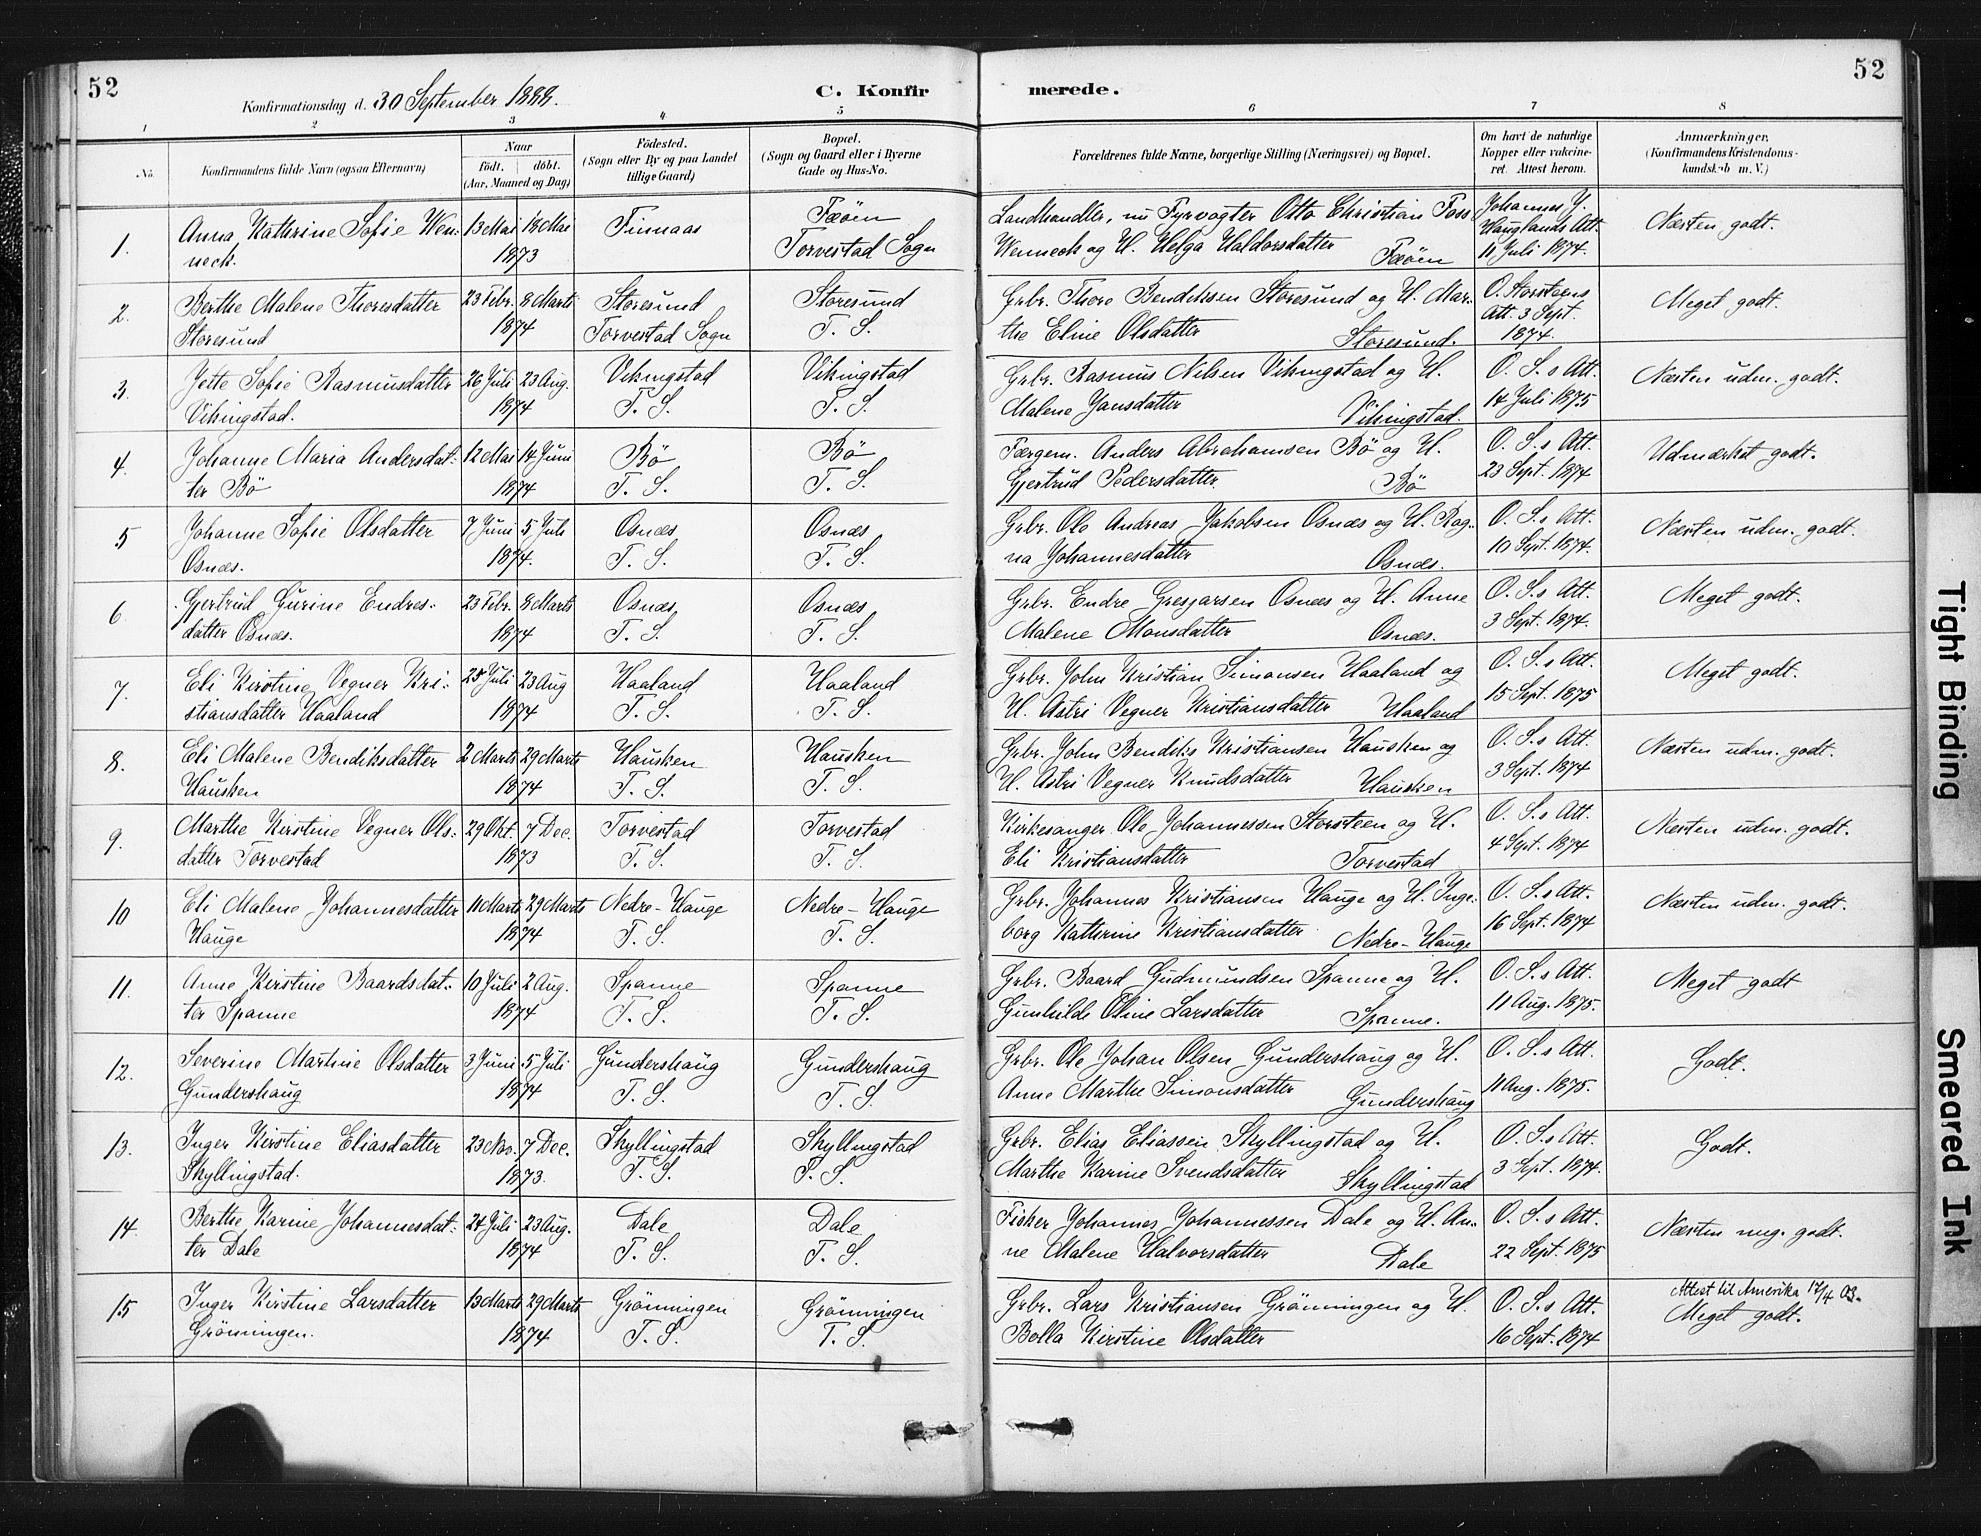 52
Konfirmationsdag d. 30 September 1888.
C. Konfir
merede.
52
1 2 3 4 5 6 7 8
No.
Konfirmandens fulde Navn (ogsaa Efternavn)
Naar
født. døbt.
(Aar, Maaned og Dag)
Födested.
(Sogn eller By og paa Landet
tillige Gaard)
Bopæl.
(Sogn og Gaard eller i Byerne
Gade og Hus-No.
Forældrenes fulde Navne, borgerlige Stilling (Næringsvei) og Bopæl.
Om havt de naturlige
Kopper eller vaccine-
ret. Attest herom.
Anmærkninger.
(Konfirmandens Kristendoms-
kundskab m. V.)
1. Anna Kathrine Sofie Wen- 13 Mai 18 Mai Finnaas Føöen Landhandler, nu Fyrvogter Otto Christian Foss Johannes J. Næsten godt.
neck. 1873 Torvestad Sogn Wenneck og H. Helga Haldorsdatter Føöen Hauglands Att.
11 Juli 1874.
2. Berthe Malene Thoresdatter 23 Febr. 8 Marts Storesund Storesund Grbr. Thore Bendiksen Storesund og H. Mar- O. Storsteens Meget godt.
Storesund 1874 Torvestad Sogn T. S. the Eline Olsdatter Storesund. Att. 3 Sept.
1874.
3. Jette Sofie Rasmusdatter 26 Juli 23 Aug. Vikingstad Vikingstad Grbr. Rasmus Nilsen Vikingstad og H. O. S.s Att. Næsten udm. godt.
Vikingstad. 1874 T. S. T. S. Malene Jansdatter Vikingstad. 14 Juli 1875
4. Johanne Maria Andersdat- 12 Mai 14 Juni Bö Bö Færgem. Anders Abrahamsen Bö og H. O. S.s Att. Udmærket godt.
ter Bö 1874 T. S. T. S. Gjertrud Pedersdatter. Bö 23 Sept. 1874
5 Johanne Sofie Olsdatter 7 Juni 5 Juli Osnæs Osnæs Grbr. Ole Andreas Jakobsen Osnæs og H. Rag- O. S.s Att. Næsten udm. godt.
Osnæs. 1874. T. S. T. S. na Johannesdatter Osnæs. 10 Sept. 1874.
6 Gjertrud Gurine Endres- 23 Febr. 8 Marts Osnæs Osnæs Grbr. Endre Gresjarsen Osnæs og H. Anne O. S.s Att. Meget godt.
datter Osnæs. 1874 T. S. T. S. Malene Monsdatter Osnæs. 3 Sept. 1874.
7. Eli Kirstine Vegner Kri- 25 Juli 23 Aug Haaland Haaland Grbr. John Kristian Simonsen Haaland og O. S.s Att. Meget godt.
stiansdatter Haaland 1874 T. S. T. S. H. Astri Vegner Kristiansdatter Haaland 15 Sept. 1875
8. Eli Malene Bendiksdatter 2 Marts 29 Marts Hausken Hausken Grbr. John Bendiks Kristiansen Hausken og O. S.s Att. Næsten udm. godt.
Hausken 1874 T. S. T. S. H. Astri Vegner Knudsdatter Hausken 3 Sept. 1874
9. Marthe Kirstine Vegner Ols- 29 Okt. 7 Dec. Torvestad Torvestad Kirkesanger Ole Johannessen Storsteen og H. O. S.s Att. Næsten udm. godt.
datter Torvestad 1873 T. S. T. S. Eli Kristiansdatter Torvestad 4 Sept. 1874
10 Eli Malene Johannesdatter 11 Marts 29 Marts Nedre-Hauge Nedre-Hauge Grbr. Johannes Kristiansen Hauge og H. Inge- O. S.s Att. Næsten udm. godt.
Hauge 1874 T. S. T. S. borg Kathrine Kristiansdatter Nedre-Hauge 16 Sept. 1874
11. Anne Kirstine Baardsdat- 10 Juli 2 Aug. Spanne Spanne Grbr. Baard Gudmundsen Spanne og H. O. S.s Att. Meget godt
ter Spanne 1874 T. S. T. S. Gunhilde Oline Larsdatter Spanne. 11 Aug. 1875.
12. Severine Martine Olsdatter 3 Juni 5 Juli Gundershaug Gundershaug Grbr. Ole Johan Olsen Gundershaug og H. O. S.s Att. Godt.
Gundershaug 1874 T. S. T. S. Anne Marthe Simonsdatter Gundershaug 11 Aug. 1875.
13. Inger Kirstine Eliasdatter 23 Nov. 7 Dec. Skyllingstad Skyllingstad Grbr. Elias Eliassen Skyllingstad og H. O. S.s Att. Godt.
Skyllingstad. 1873. T. S. T. S. Marthe Karine Svendsdatter Skyllingstad 3 Sept. 1874.
14. Berthe Karine Johannesdat- 24 Juli 23 Aug. Dale Dale Fisker Johannes Johannessen Dale og H. An- O. S.s Att. Næsten meg. godt.
ter Dale 1874 T. S. T. S. ne Malene Halvorsdatter Dale 22 Sept. 1875
15 Inger Kirstine Larsdatter 13 Marts 29 Marts Grönningen Grönningen Grbr. Lars Kristiansen Grönningen og H. O. S.s Att. Attest til Amerika 17/4 03.
Grönningen. 1874 T. S. T. S. Bolla Kirstine Olsdatter 16 Sept. 1874 Meget godt.
Tight Binding
Smeared Ink